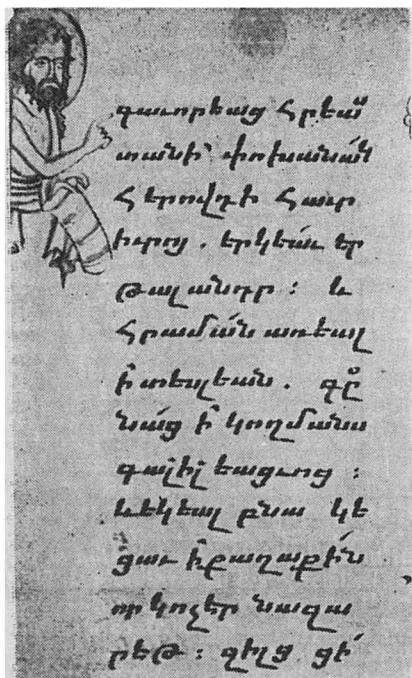 գաւորեաց հրեաս
տանի փոխանակ
հերովդի հաւր
իւրոյ . երկեաւ եր
թալ անդր : և
հրաման առեալ
ի տեսլեան . գը
նաց ի կողմանս
գալիլեացւոց :
և եկեալ բնա կե
ցաւ ի քաղաքին
որ կոչեր նազա
րեթ : զիլց ցի